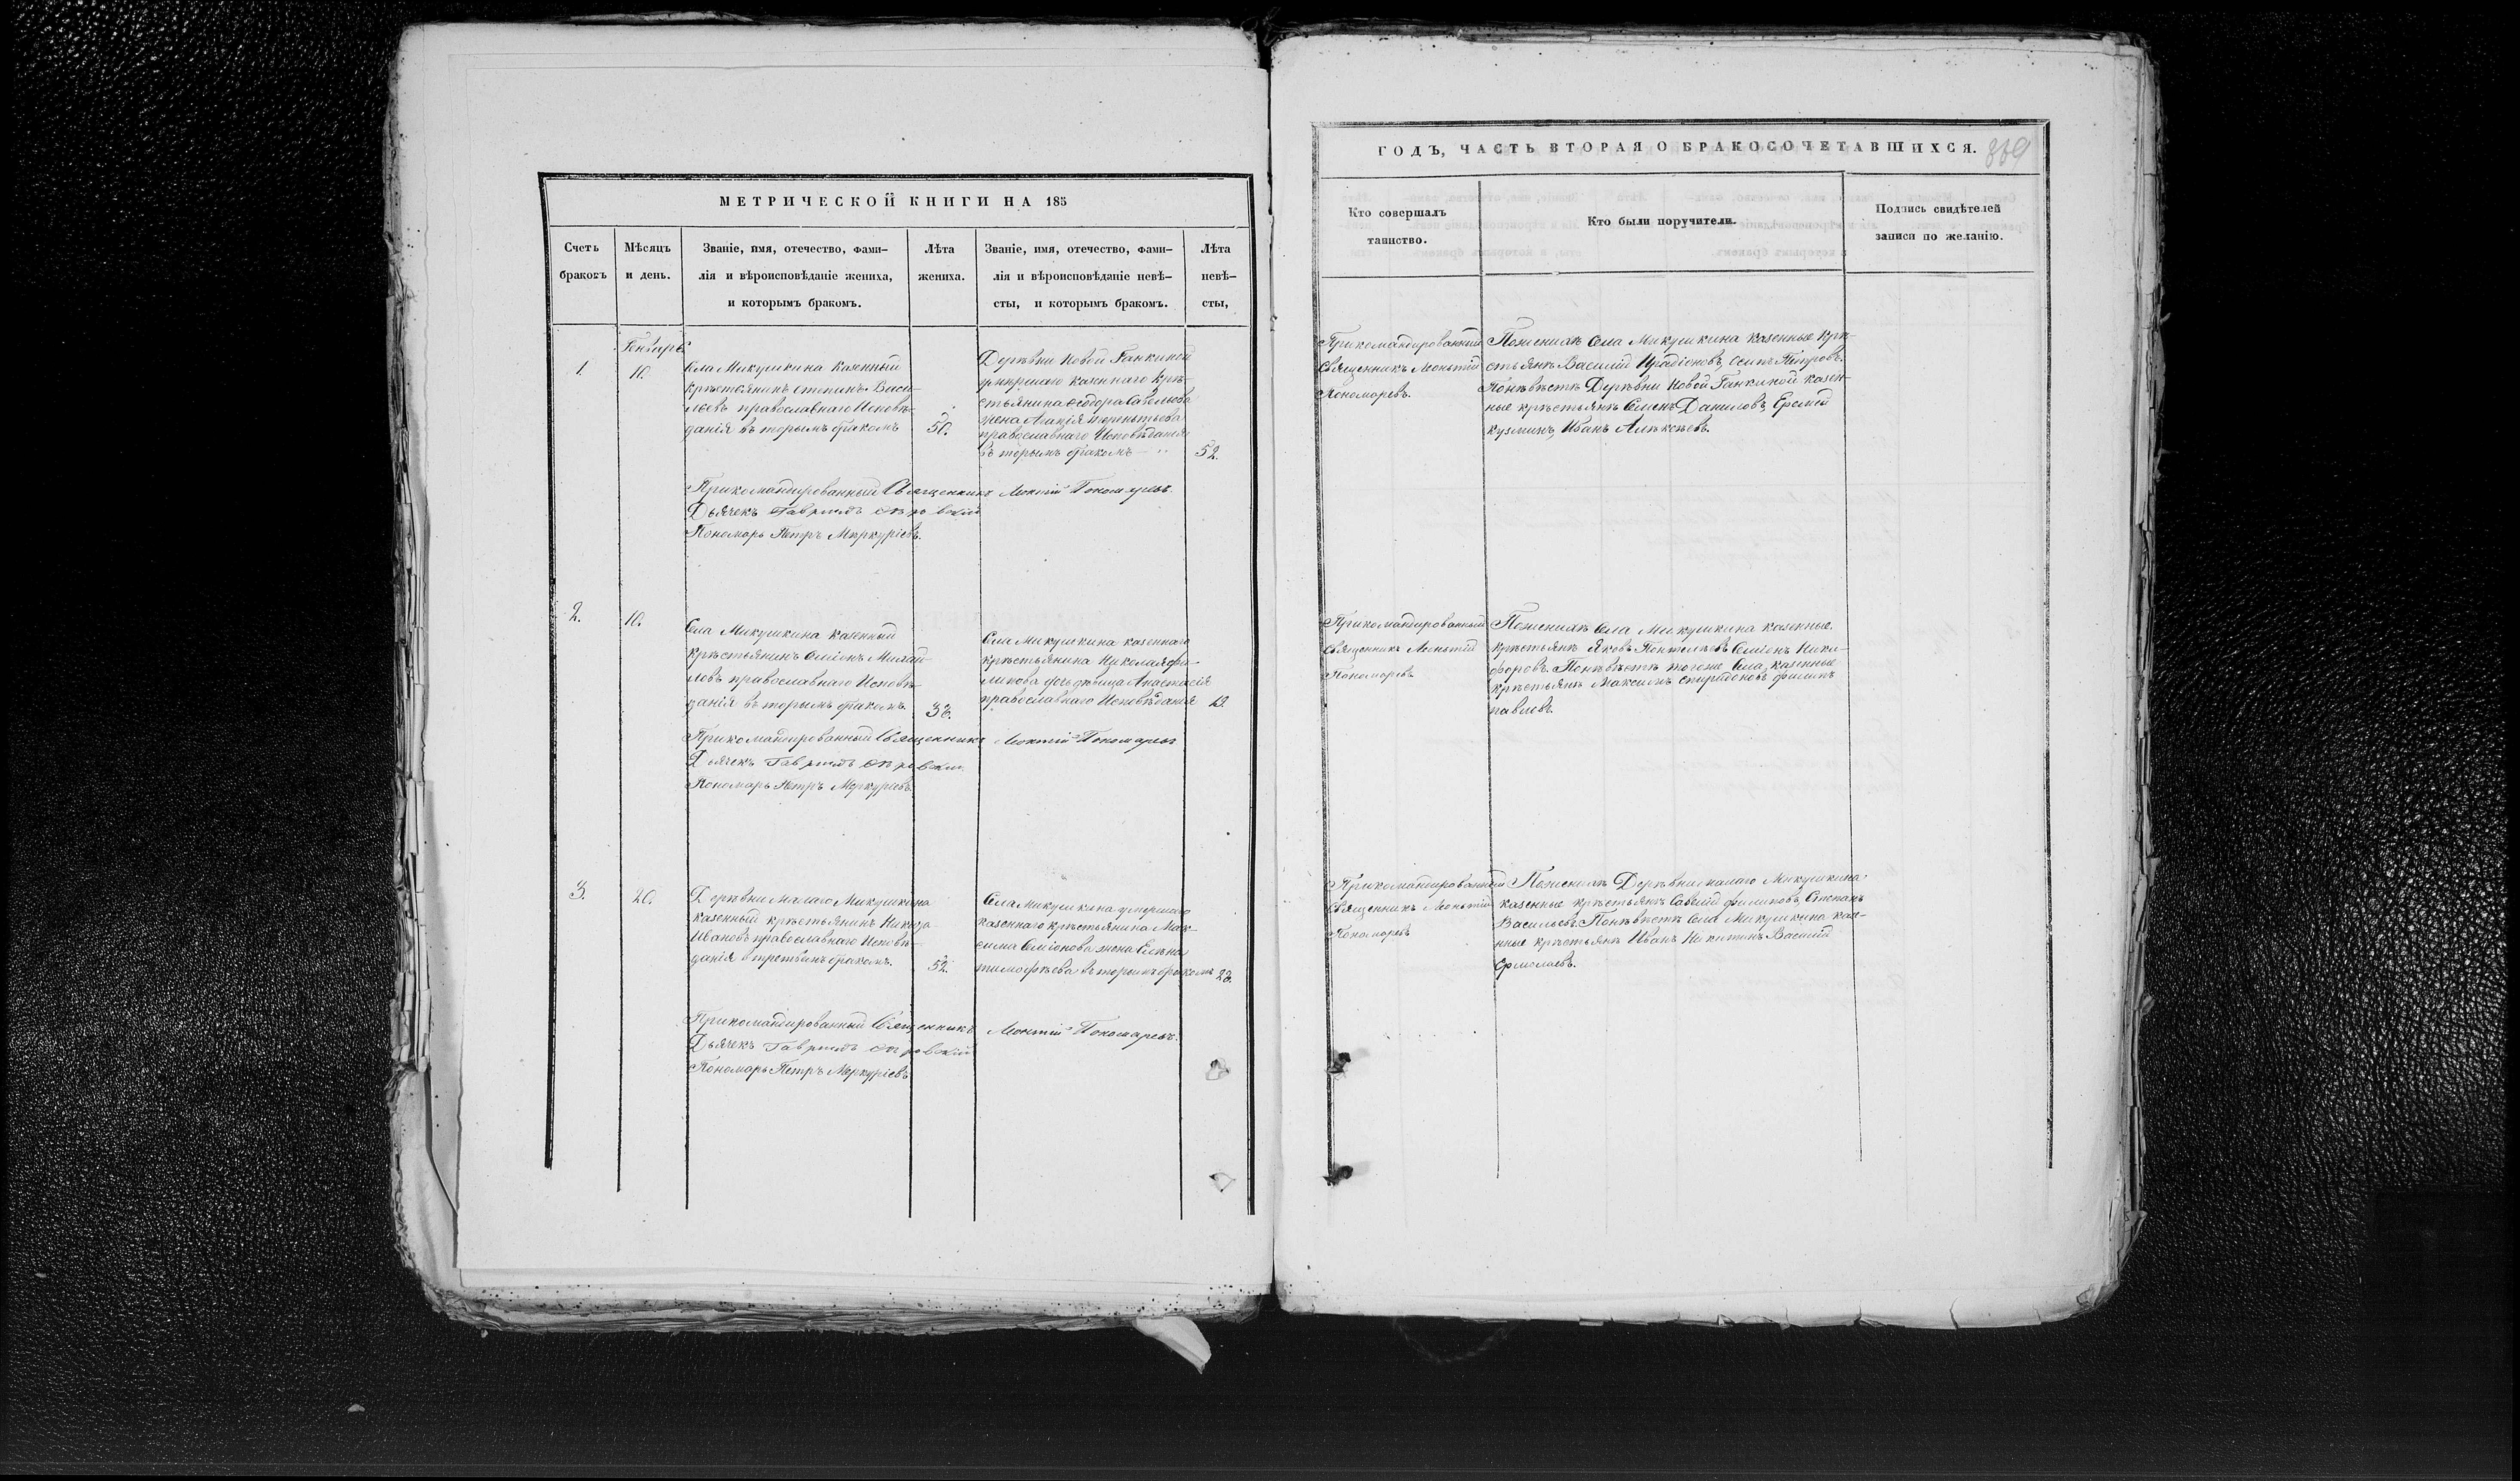 МЕТРИЧЕСКОЙ КНИГИ НА 185
Счетъ браковъ
Мѣсяцъ и день.
Званіе, имя, отечество, фами-
лія и вѣроисповѣданіе жениха,
и которымъ бракомъ.
Лѣта
жениха.
Званіе, имя, отечество, фами-
лія и вѣроисповѣданіе невѣ-
сты, и которымъ бракомъ.
Лѣта
невѣ-
сты,
Генваре
1.
10.
Села Микушкина казенный
крѣстьянинъ степанъ Васи-
льевъ православнаго Исповѣ-
данія вторымъ бракомъ
50.
Дерѣвни Новой Ганкиной
умершаго казеннаго крѣ-
стьянина Феодора Савельева
жена терентьева
православнаго Исповѣданія
вторымъ бракомъ
52.
Прикомандированный Священникъ Леонтій Пономаревъ.
Дьячекъ Гавриилъ
Пономарь Петръ Меркуріевъ.
2.
10.
Села Микушкина казенный
крѣстьянинъ Симіонъ Михаи-
ловъ православнаго Исповѣ-
данія вторымъ бракомъ.
Села Микушкина казеннаго
крѣстьянина Николая фи-
липова дочь дѣвица Анастасія
православнаго Исповѣданія
Прикомандированный Священникъ Леонтій Пономаревъ
Дьячекъ Гавриилъ
Пономарь Петръ Меркуріевъ
3.
20.
Дерѣвни малаго Микушкина
казенный крѣстьянинъ
Ивановъ православнаго Исповѣ-
данія третьимъ бракомъ.
52.
Села Микушкина умершаго
казеннаго крѣстьянина Мак-
сима Симіонова жена Елѣна
тимофѣева вторымъ бракомъ
28.
Прикомандированный Священникъ Леонтій Пономаревъ.
Дьячекъ Гавриилъ
Пономарь Петръ Меркуріевъ
ГОДЪ, ЧАСТЬ ВТОРАЯ О БРАКОСОЧЕТАВШИХСЯ.
Кто совершалъ
таинство.
Кто были поручители.
Подпись свидѣтелей
записи по желанію.
Прикомандированный
Священникъ Леонтій
Пономаревъ.
Пожениxѣ Села Микушкина казенные крѣ-
стьянѣ Василій Иродіоновъ, Осипъ Петровъ.
Понѣвѣстѣ Дерѣвни Новой Ганкиной казен-
ные крѣстьянѣ Семенъ Даниловъ, Еремей
кузминъ, Иванъ Алѣксѣевъ.
Прикомандированный
Священникъ Леонтій
Пономаревъ
Поженихѣ Села Микушкина казенные
крѣстьянѣ Яковъ Понтелѣевъ Симіонъ Ники-
форовъ. Понѣвѣстѣ тогоже Села казенные
крѣстьянѣ Максимъ спиридоновъ филипъ
павловъ.
Прикомандированный
Священникъ Леонтій
Пономаревъ
Поженихѣ Дерѣвни малаго Микушкина
казенные крѣстьянѣ Савелій филиповъ, Степанъ
Васильевъ. Понѣвѣстѣ Села Микушкина казе-
нные крѣстьянѣ Иванъ Никитинъ Василій
Ермолаевъ.